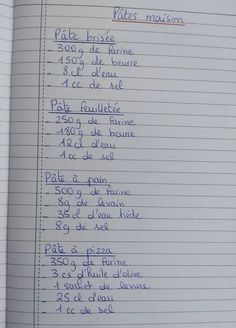 Pâtes maison
Pâte brisée
- 300g de farine
- 150g de beurre
- 8cl d'eau
- 1 cc de sel
Pâte feuilletée
- 250g de farine
- 180g de beurre
- 12cl d'eau
- 1 cc de sel
Pâte à pain
- 500g de farine
- 8g de levain
- 35cl d'eau tiède
- 8g de sel
Pâte à pizza
- 350g de farine
- 3 cs d'huile d'olive
- 1 sachet de levure
- 25cl d'eau
- 1 cc de sel